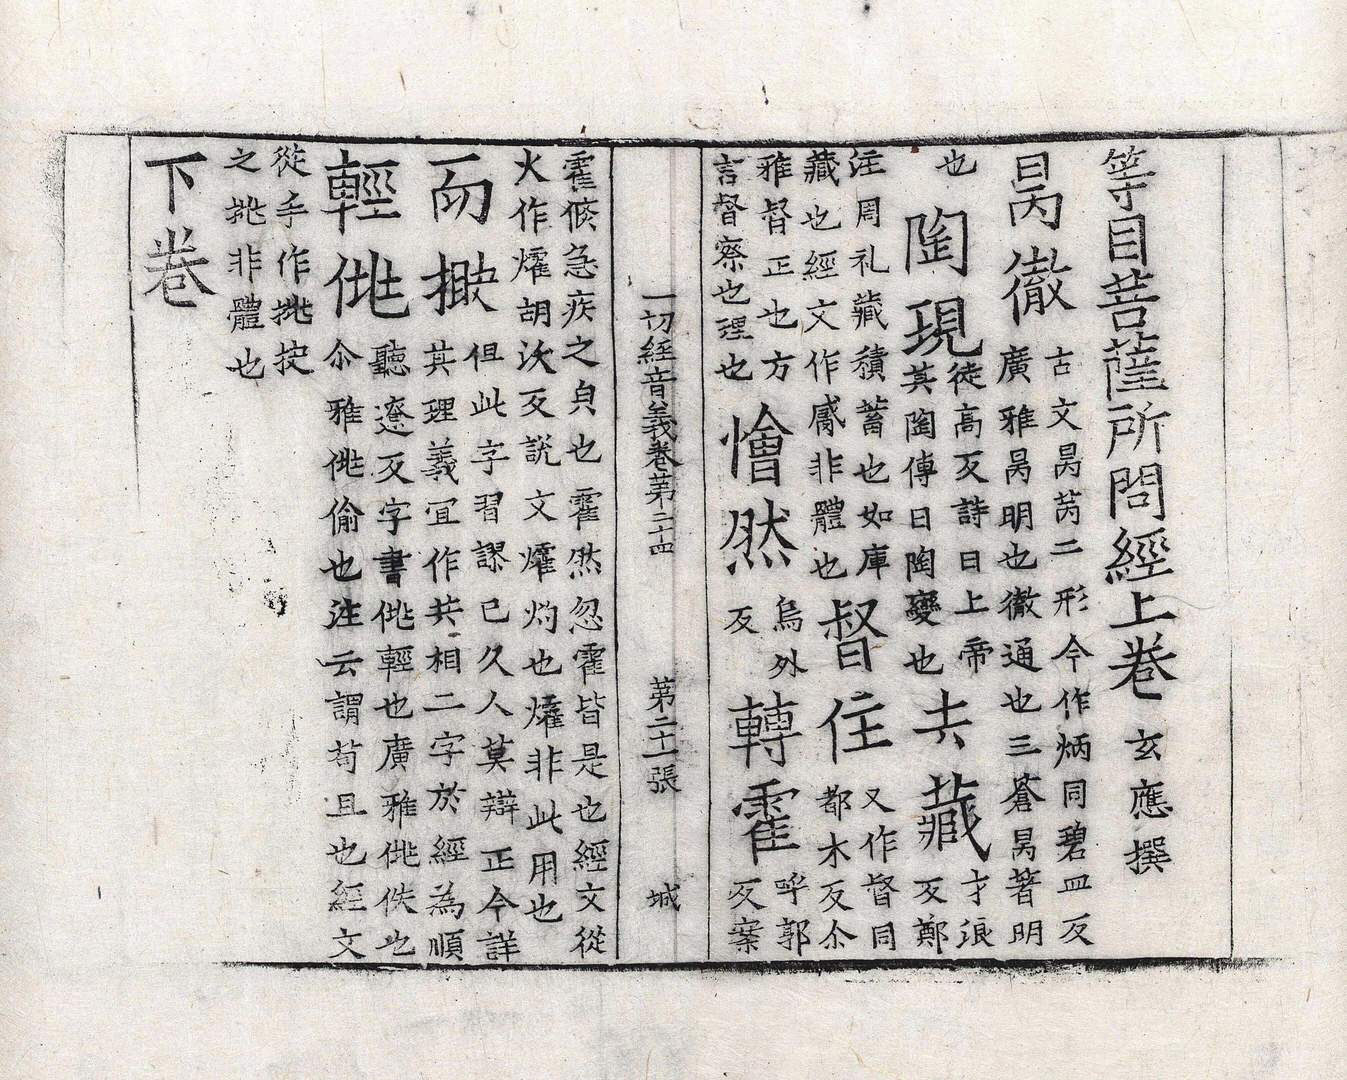 等目菩薩所問經上卷 玄應撰
昺徹 古文昺苪二形今作炳同碧皿反
廣雅昺明也徹通也三蒼昺著明
也 陶現 徒高反詩曰上帝
其陶傳曰陶變也 去藏 才浪
反鄭
注周礼藏積蓄也如庫
藏也經文作非體也 督住 又作督同
都木反尒
雅督正也方
言督察也理也 憎然 烏外
反 轉霍 呼郭
反案
一切經音義卷苐二十四 苐二十一張 城
霍倐急疾之皃也霍然忽霍皆是也經文從
火作㸌胡沃反說文㸌灼也㸌非此用也
而 但此字習謬已久人莫辯正今詳
其理義宜作共相二字於經為順
輕佻 聽遼反字書佻輕也廣雅佻佚也
尒雅佻偷也注云謂苟且也經文
從手作挑
之挑非體也
下卷